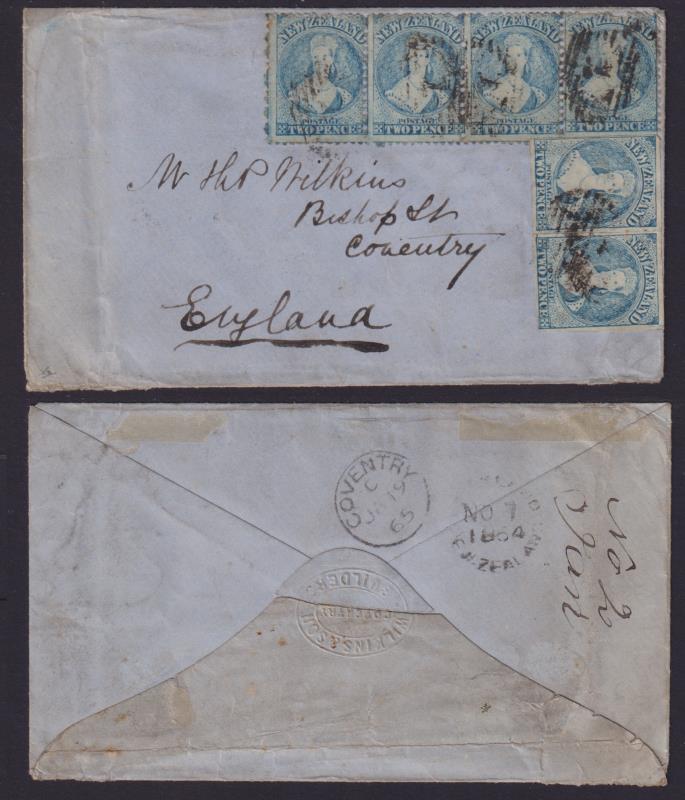 NEW ZEALAND NEW ZEALAND NEW ZEALAND NEW ZEALAND
POSTAGE POSTAGE POSTAGE POSTAGE
TWO PENCE TWO PENCE TWO PENCE TWO PENCE
NEW ZEALAND
POSTAGE
TWO PENCE
NEW ZEALAND
POSTAGE
TWO PENCE
Wilkins
Bishop St
Coventry
England
COVENTRY
C
19
65
NO 7
1864
ZEALAND
No 2
WILKINS & SON
BUILDERS
COVENTRY